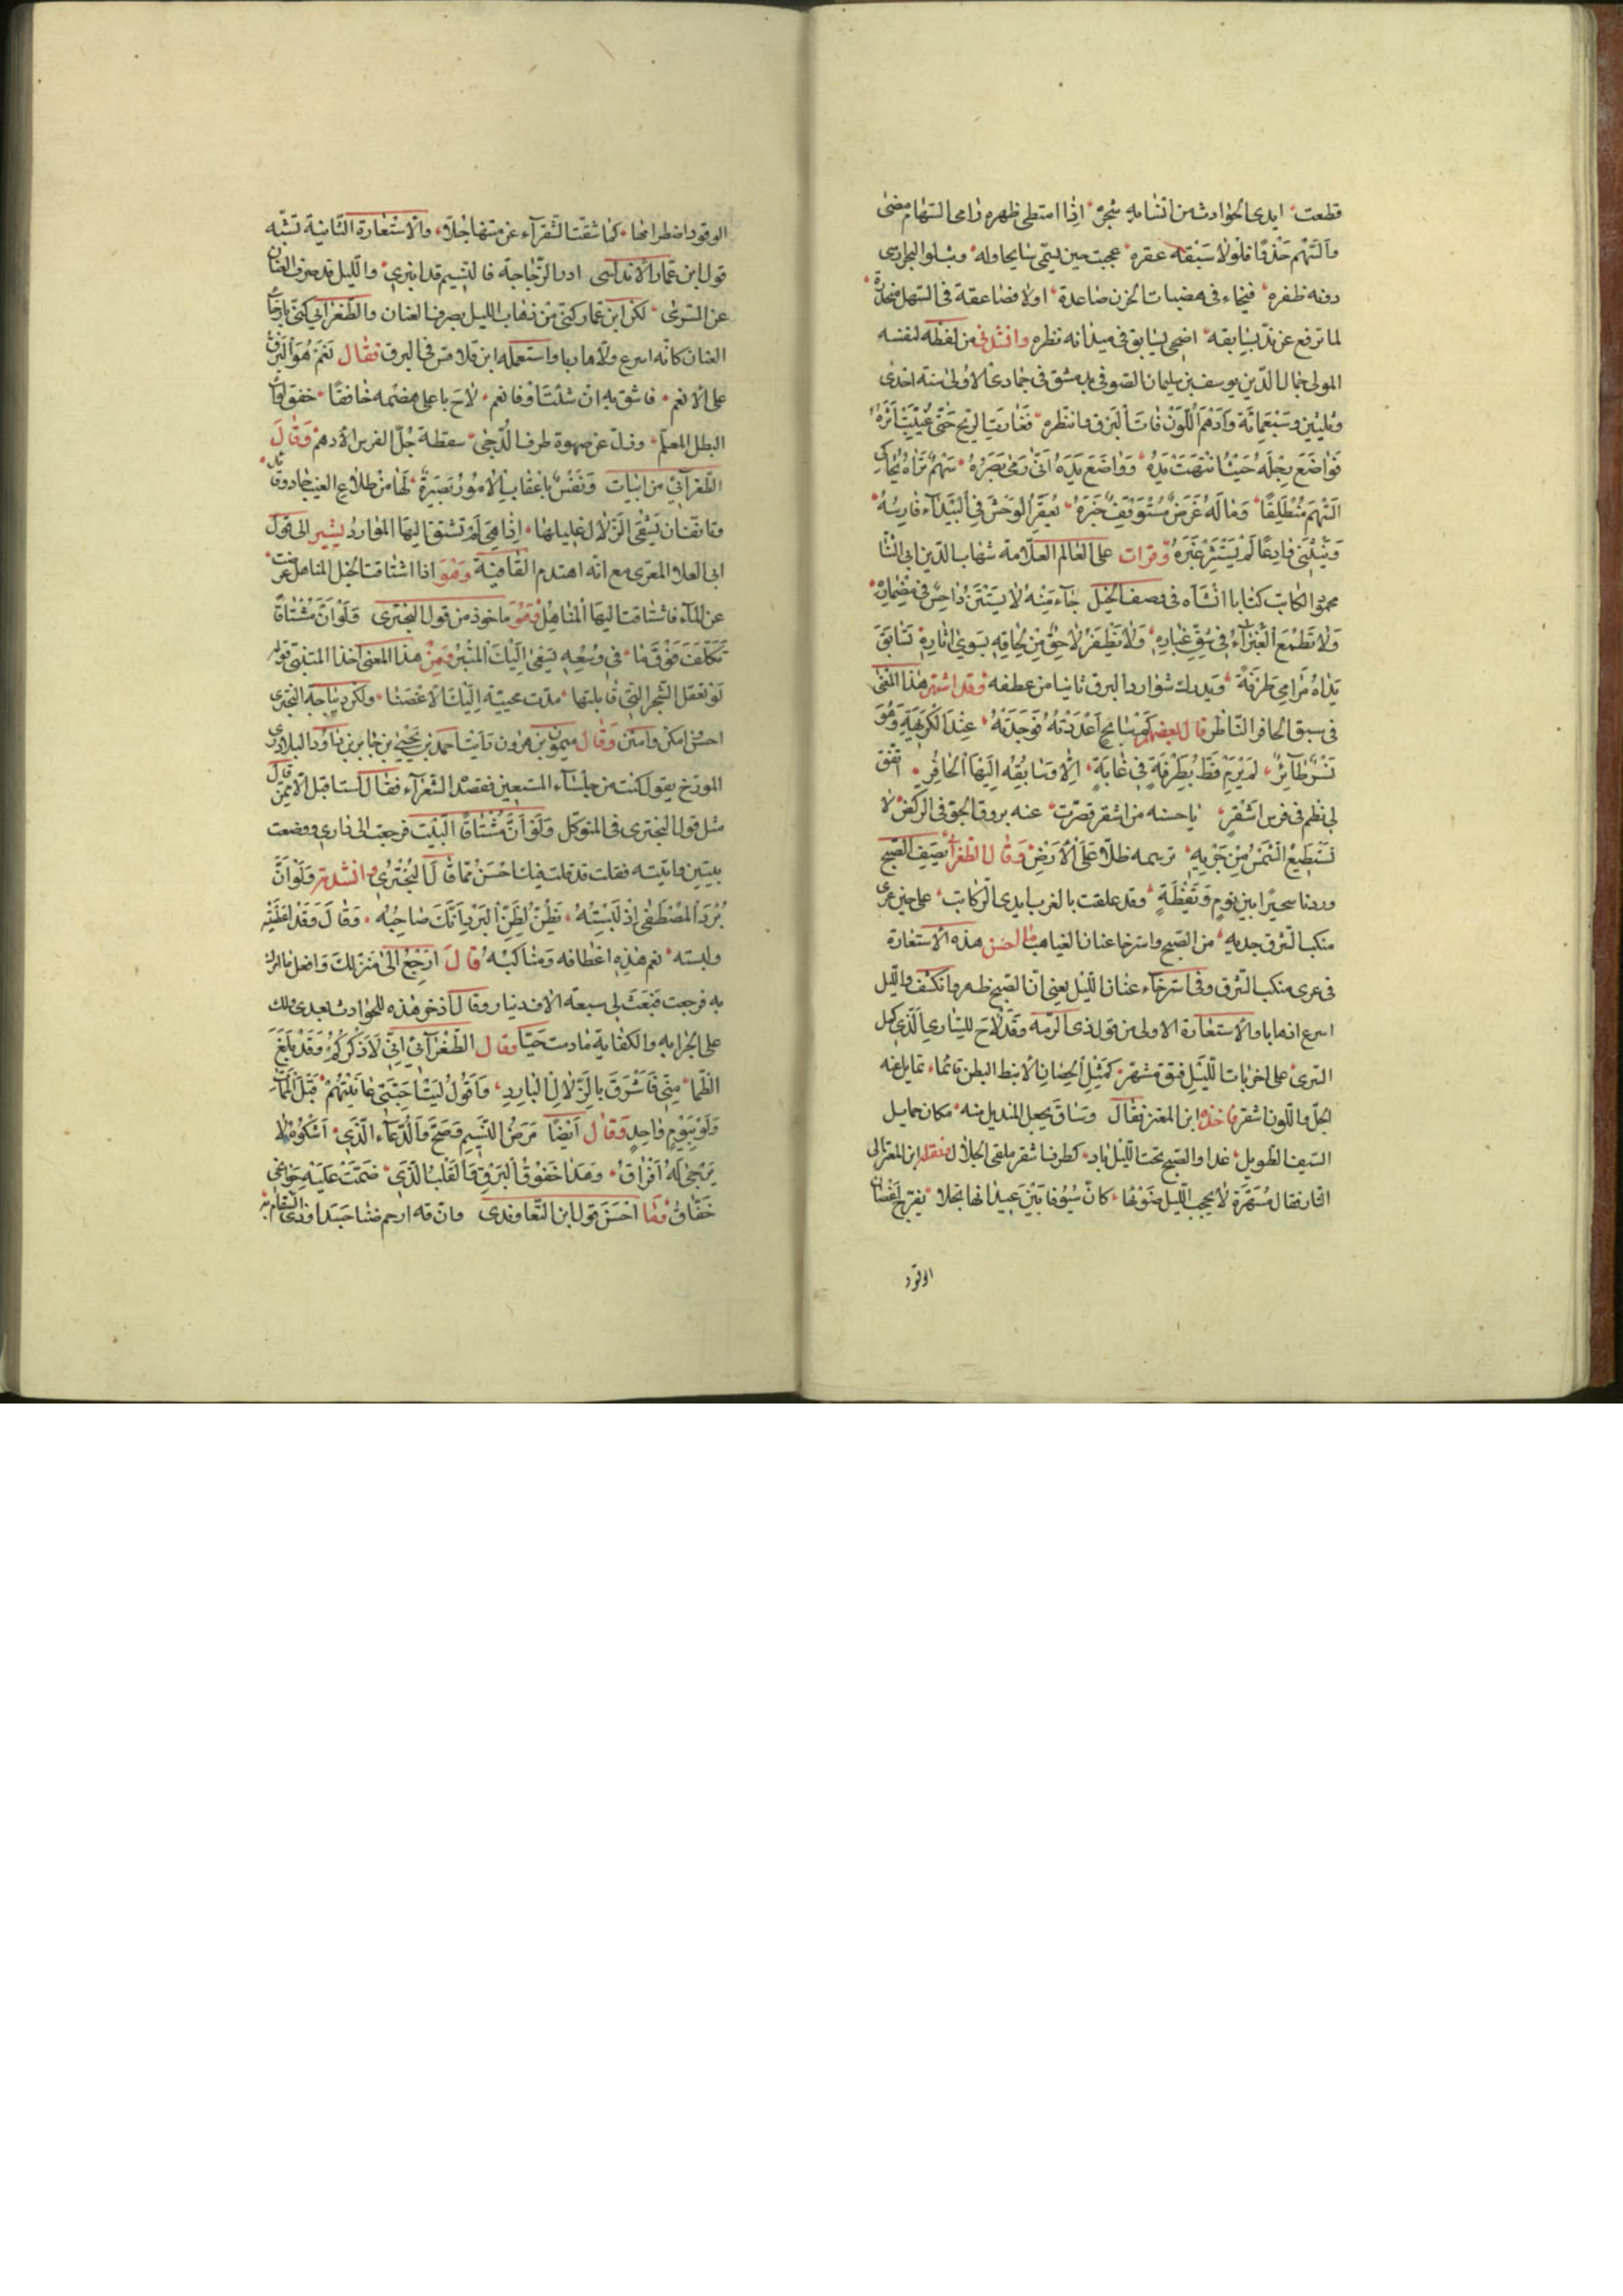 قطعت ايدى الحوادث من اتشابه اذا امتطى ظهره رامى السهام مضى
والسهم حذقا فلولا سبقه عقره عجبت حين يسمى سابحا وله
دونه ظفره فى هضبات الحزن صاعدة اولا فصاعقة فى السهل منحدرة
لما ترفع عن ند يسابقه اضحى يسابق فى ميدانه نظره وانشدنى من لفظه لنفسه
المولى جمال الدين يوسف بن سليمان الصوفى بدمشق فى جمادى الاولى سنة احدى
وثلثين وسبعمائة وادهم اللون فات البرق وانتظره فغارت الريح حتى غيبت اثره
فواضع رجله حيث انتهت يده وواضع يده انى رمى بصره سهم تراه يحاكى
السهم منطلقا وما له غرض مستوقف خبره يعقر الوحش فى البيداء فارسه
وينثنى وادعا لم يستثر غبره وقرات على العالم العلامة شهاب الدين ابى الثنا
محمود الكاتب كتابا انشاه فى وصف الخيل جاء منه لا يستن داحس فى مضماره
ولا تطمع الغبراء فى شق غباره ولا يظفر لاحق من لحاقه بسوى اثاره تسابق
يداه مرامى طرفه ويدرك شوارد البرق ثانيا من عطفه وقد اشتهر هذا المعنى
فى سبق الحافر الناظر قال بعضهم كم سابح اعددته فوجدته عند الكريهة وهو
نسر طائر لم يرم قط بطرفه فى غاية الا وسابقه اليها الحافر اتفق
لى نظم فى فرس اشقر ياحسنه من اشقر قصرت عنه بروق الجو فى الركض لا
تستطيع الشمس من جريه ترسمه ظلا على الارض وقال الطغرائى يصف الصبح
وردنا سحيرا بين يوم وليقظة وقد علقت بالغرب ايدى الركائب على حين عرى
منكب الشرق جذبه من الصبح واسترخا عنان الغياهب ما احسن هذه الاستعارة
فى عرى منكب الشرق وفى استرخاء عنان الليل يعنى ان الصبح ظهر وانكشف والليل
اسرع انهابا والاستعارة الاولى من قول ذى الرمه وقد لاح للسارى الذى كمل
السرى على اخريات الليل فتق مشهر كمثل الحصان الانبط البطن قائما تمايل عنه
الجل فاللون اشقر فاخذه ابن المعتز فقال وساق يجعل المنديل منه مكان حمايل
السيف الطويل غدا والصبح تحت الليل باد كطرف اشقر ملقى الجلال فنقله ابن المعتز الى
النار فقال مشهرة لا يحجب الليل ضوئها كان سيوفا بين عيدانها تجلا يفرج اغصان
الوقود
الوقود اضطرامها كما شقت الشقراء عن متنها جلا والاستعارة الثانية تشبه
قول ابن عمار الاندلسى ادر الزجاجة فالنسيم قد انبرى والليل قد صرف العنان
عن السرى لكن ابن عمار كنى عن ذهاب الليل بصرف العنان والطغرائى كنى بارخا
العنان كانه اسرع ولا هابا واستعمله ابن قلاقس فى البرق فقال نعم هو البرق
على الانعم فاشق به ان شئت او فانعم لاح باعلى هضمه خافقا خفق لوا
البطل المعلم وذل عن صهوة طرف الدجى سقطة جل الفرس الادهم وقال
الطغرائى من ابيات ونفس باعقاب الامور بصيرة لها من طلاع الغيب حاد وقائد
وتانف ان يشفى الزلال غليلها اذا هى لم تشتق اليها الموارد يشير الى قول
ابى العلا المعرى مع انه اهتدم القافية وهو اذا اشتاقت الخيل المناهل اعرضت
عن الماء فاشتاقت اليها المناهل وهو ماخوذ من قول البحترى ولو ان مشتاقا
تكلف فوق ما فى وسعه لسعى اليك المنبر ومن هذا المعنى اخذ المتنبى قوله
لو تعقل الشجر التى قابلتها مدت محيية اليك الاغصنا ولكن ديباجة البحترى
احسن امكن وامتن وقال ميمون بن هرون رايت احمد بن يحيى بن جابر بن داود البلاذرى
المورخ يقول كنت من جلساء المستعين فقصد الشعراء فقال لست اقبل الا ممن قال
مثل قول البحترى فى المتوكل ولو ان مشتاقا البيت فرجعت الى دارى ووضعت
بيتين واتيته فقلت قد قلت فيك احسن مما قال البحترى وانشدته ولو ان
برد المصطفى اذ لبسته يظن لظن البرد انك صاحبه وقال وقد اعطيته
ولبسته نعم هذه اعطافه ومناكبه قال ارجع الى منزلك وافعل ما امرك
به فرجعت فبعث لى سبعة الاف دينار وقال اذخر هذه للحوادث بعدى ولك
على الجرايه والكفاية مادمت حيا وقال الطغرائى انى لاذكركم وقد بلغ
الظما منى فاشرق بالزلال البارد واقول ليت احبتى عاينتهم قبل الممات
ولو بيوم واحد وقال ايضا مرض النسيم وصح والدعاء الذى اشكوه لا
يرجى له افراق وهذا خفوق البرق والقلب الذى ضمت عليه جوانحى
خفاق وما احسن قول ابن التعاويذى